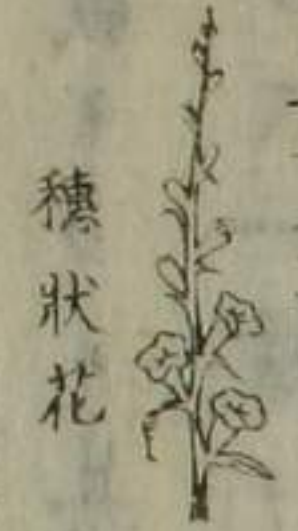 穗狀花